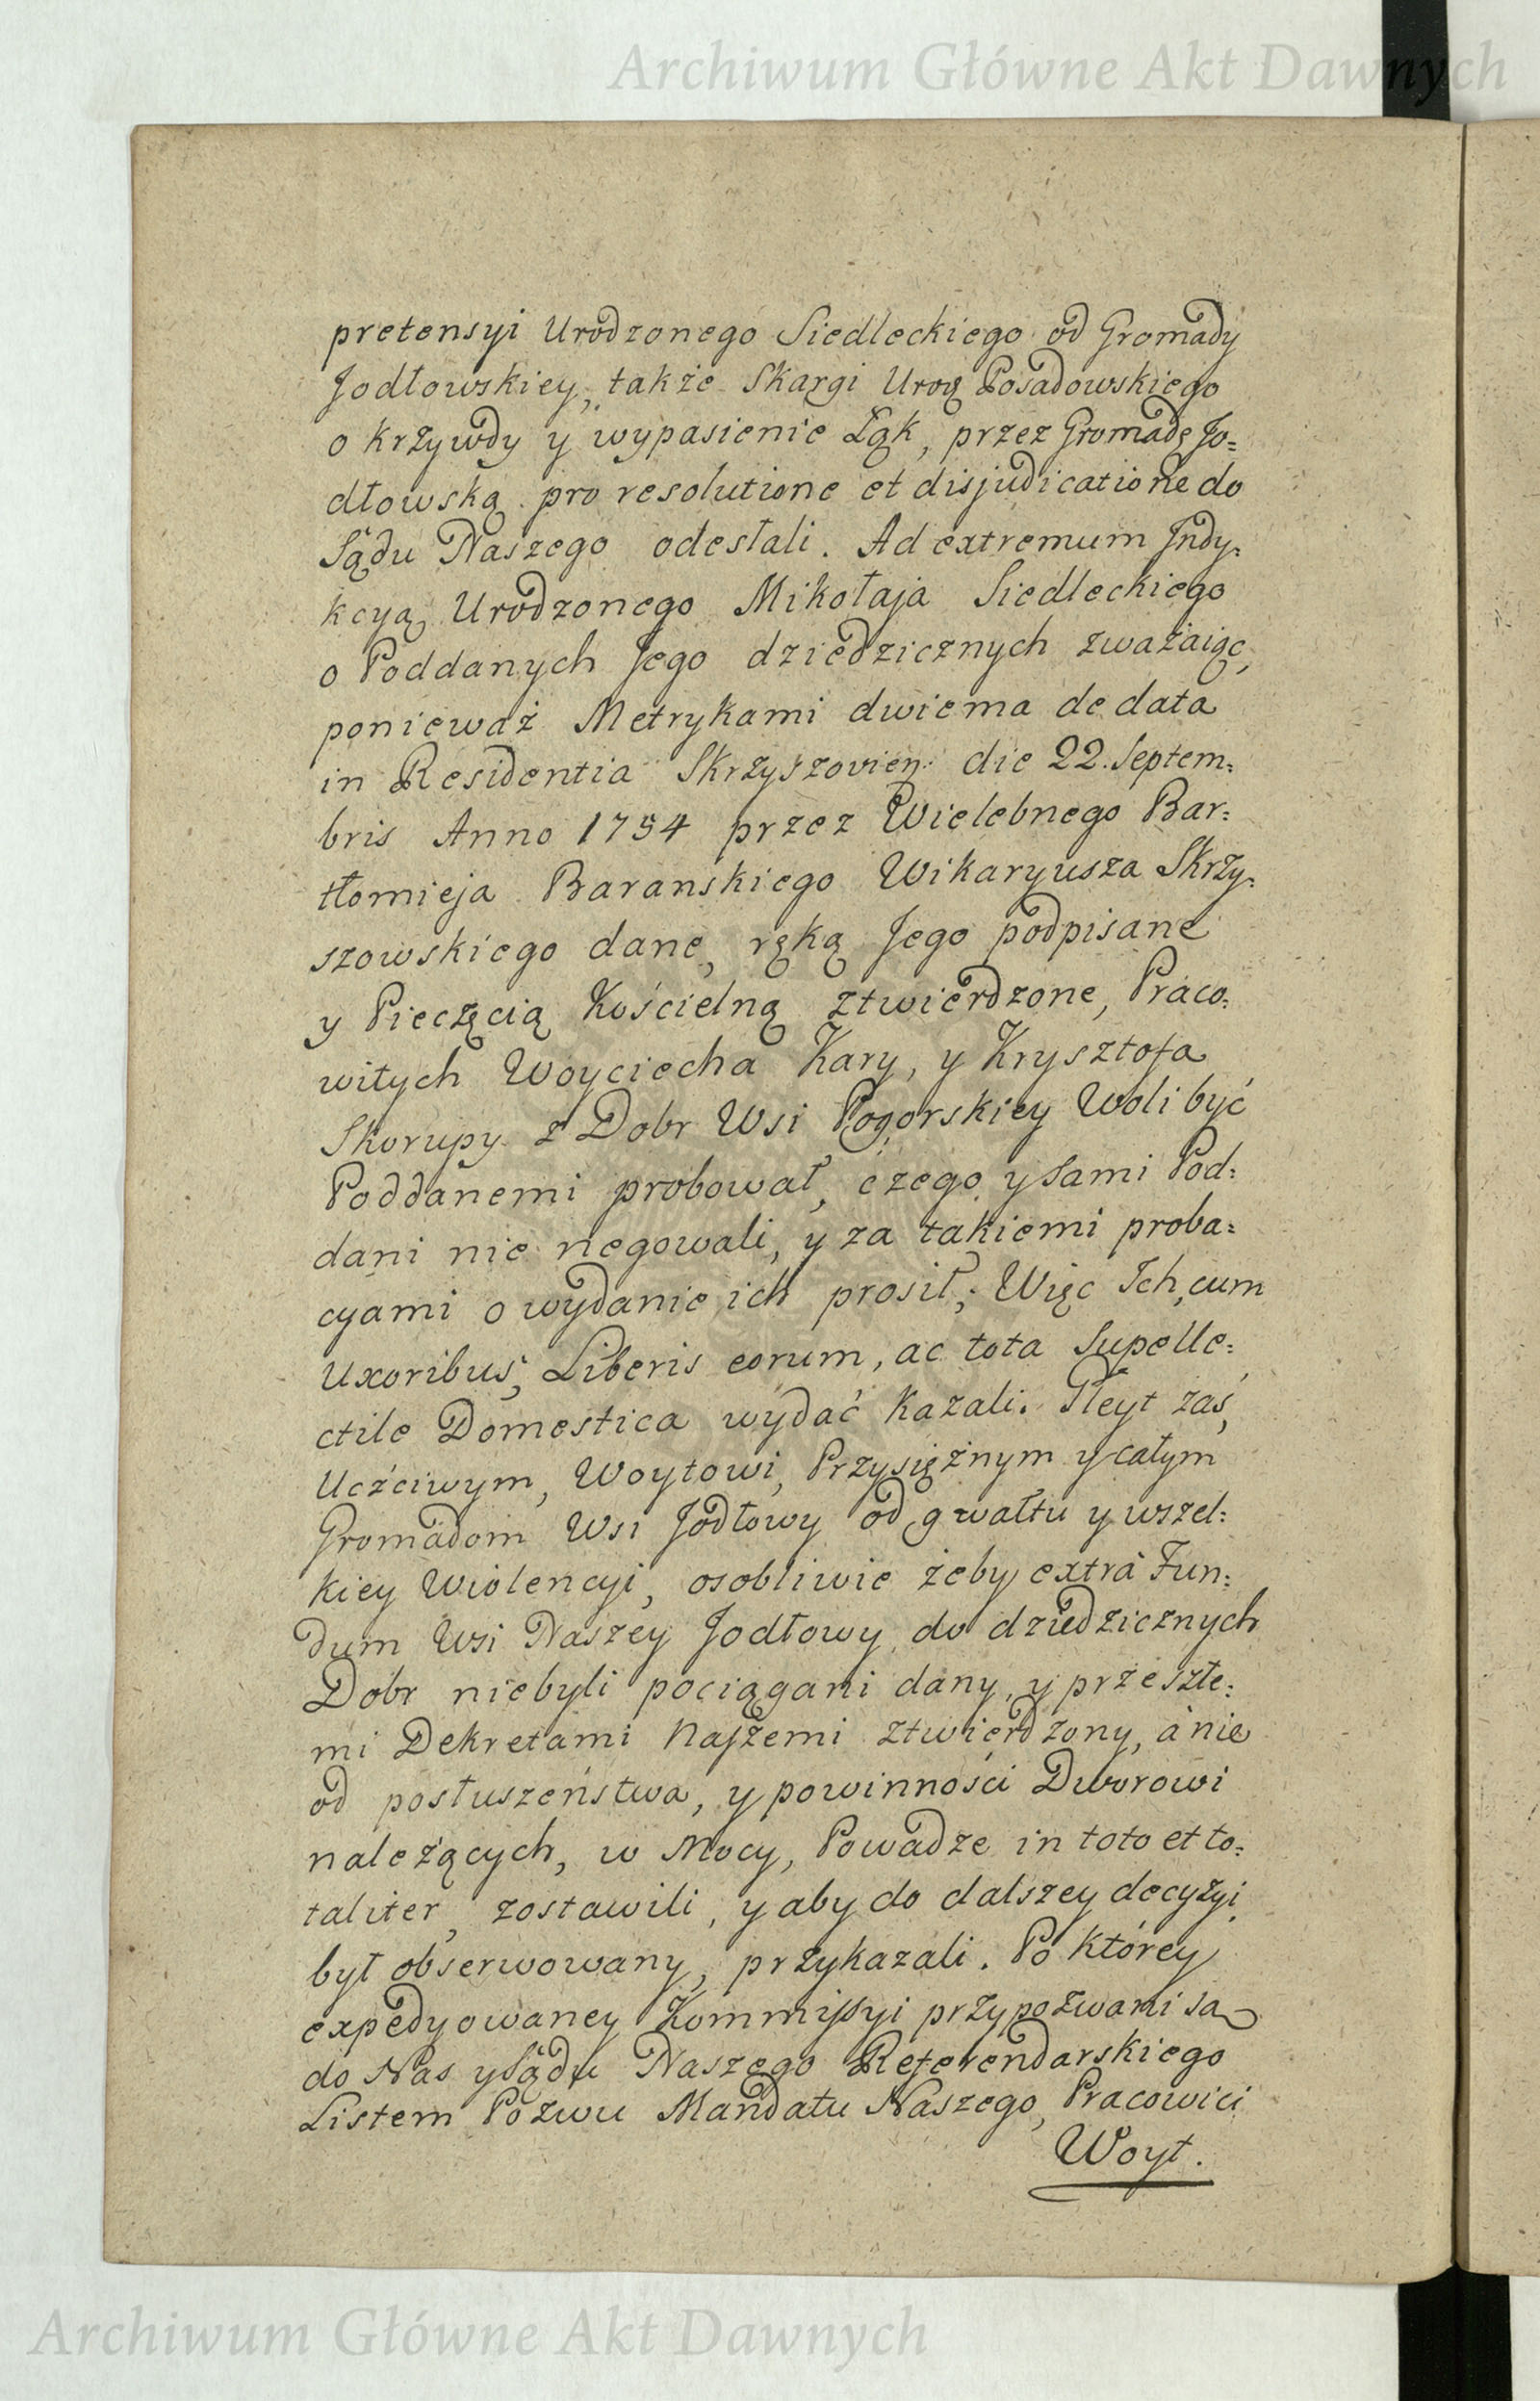 Archiwum Główne Akt Dawnych
pretensyi Urodzonego Siedleckiego od Gromady
Jodłowskiey, także Skargi Urog Posadowskiego
o krzywdy y wypasienie Łąk, przez Gromadę Jo=
dłowską pro resolutione et disjudicatione do
Sądu Naszego odesłali. Ad extremum Jndy=
kcyą Urodzonego Mikołaja Siedleckiego
o Poddanych Jego dziedzicznych zważaiąc,
ponieważ Metrykami dwiema de data
in Residentia Skrzyszovien: die 22. Septem=
bris Anno 1754 przez Wielebnego Bar=
tłomieja Baranskiego Wikaryusza Skrzy=
szowskiego dane, ręką Jego podpisane
y Pieczęcią Kościelną ztwierdzone, Praco=
witych Woyciecha Kary, y Krysztofa
Skorupy z Dobr Wsi Pogorskiey Woli być
Poddanemi probował, czego y sami Pod=
dani nie negowali, y za takiemi proba=
cyami o wydanie ich prosił; Więc Ich, cum
Uxoribus, Liberis eorum, ac tota Supelle=
ctile Domestica wydać kazali. Gleyt zaś,
Uczciwym, Woytowi, Przysiężnym y całym
Gromadom Wsi Jodłowy od gwałtu y wszel=
kiey Wiolencyi, osobliwie żeby extra Fun=
dum Wsi Naszey Jodłowy do dziedzicznych
Dobr niebyli pociągani dany, y przeszłe=
mi Dekretami Naszemi ztwierdzony, a nie
od posłuszeństwa, y powinności Dworowi
należących, w Mocy, Powadze in toto et to=
taliter, zostawili, y aby do dalszey decyzyi
był obserwowany, przykazali. Po którey
expedyowaney Kommissyi przypozwani są
do Nas y Sądu Naszego Referendarskiego
Listem Pozwu Mandatu Naszego, Pracowici
Woyt.
Archiwum Główne Akt Dawnych